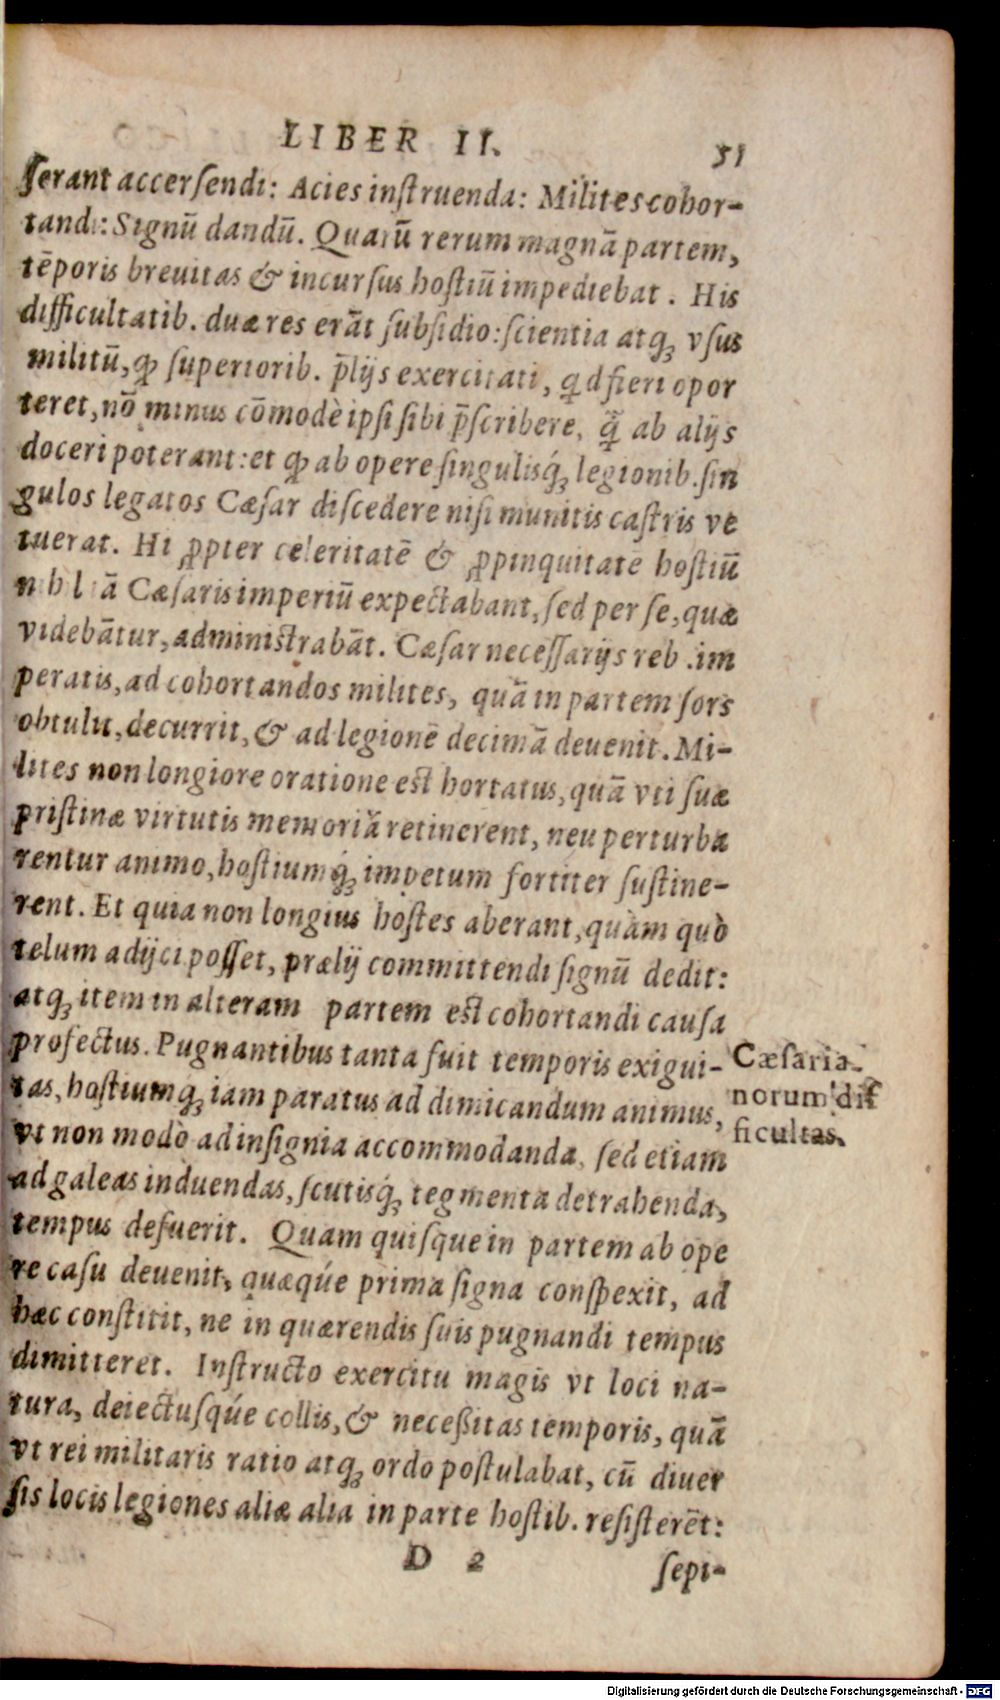 LIBER II. 51
ſerant accerſendi: Acies inſtruenda: Milites cohor-
tandi: Signū dandū. Quarū rerum magnā partem,
tēporis breuitas & incurſus hoſtiū impediebat. His
difficultatib. duæ res erāt ſubſidio: ſcientia atq; vſus
militū, ꝙ ſuperiorib. p̄lijs exercitati, qd fieri opor
teret, nō minus cōmodè ipſi ſibi p̄ſcribere, q̄ ab alijs
doceri poterant: et ꝙ ab opere ſingulisq́; legionib. ſin
gulos legatos Cæſar diſcedere niſi munitis caſtris ve
tuerat. Hi ꝓpter celeritatē & ꝓpinquitatē hoſtiū
nihil iā Cæſaris imperiū expectabant, ſed per ſe, quæ
videbātur, adminiſtrabāt. Cæſar neceſſarijs reb. im
peratis, ad cohortandos milites, quā in partem ſors
obtulit, decurrit, & ad legionē decimā deuenit. Mi-
lites non longiore oratione eſt hortatus, quā vti ſuæ
priſtinæ virtutis memoriā retinerent, neu perturba
rentur animo, hoſtiumq́; impetum fortiter ſuſtine-
rent. Et quia non longius hoſtes aberant, quàm quò
telum adijci poſſet, prælij committendi ſignū dedit:
atq; item in alteram partem eſt cohortandi cauſa
profectus. Pugnantibus tanta fuit temporis exigui-
tas, hoſtiumq; iam paratus ad dimicandum animus,
vt non modò ad inſignia accommodanda, ſed etiam
ad galeas induendas, ſcutisq́; tegmenta detrahenda,
tempus defuerit. Quam quiſque in partem ab ope
re caſu deuenit, quæqúe prima ſigna conſpexit, ad
hæc conſtitit, ne in quærendis ſuis pugnandi tempus
dimitteret. Inſtructo exercitu magis vt loci na-
tura, deiectuſqúe collis, & neceßitas temporis, quā
vt rei militaris ratio atq; ordo poſtulabat, cū diuer
ſis locis legiones aliæ alia in parte hoſtib. reſiſterēt:
Cæſaria-
norum dif
ficultas.
D 2 ſepi-
Digitalisierung gefördert durch die Deutsche Forschungsgemeinschaft - DFG